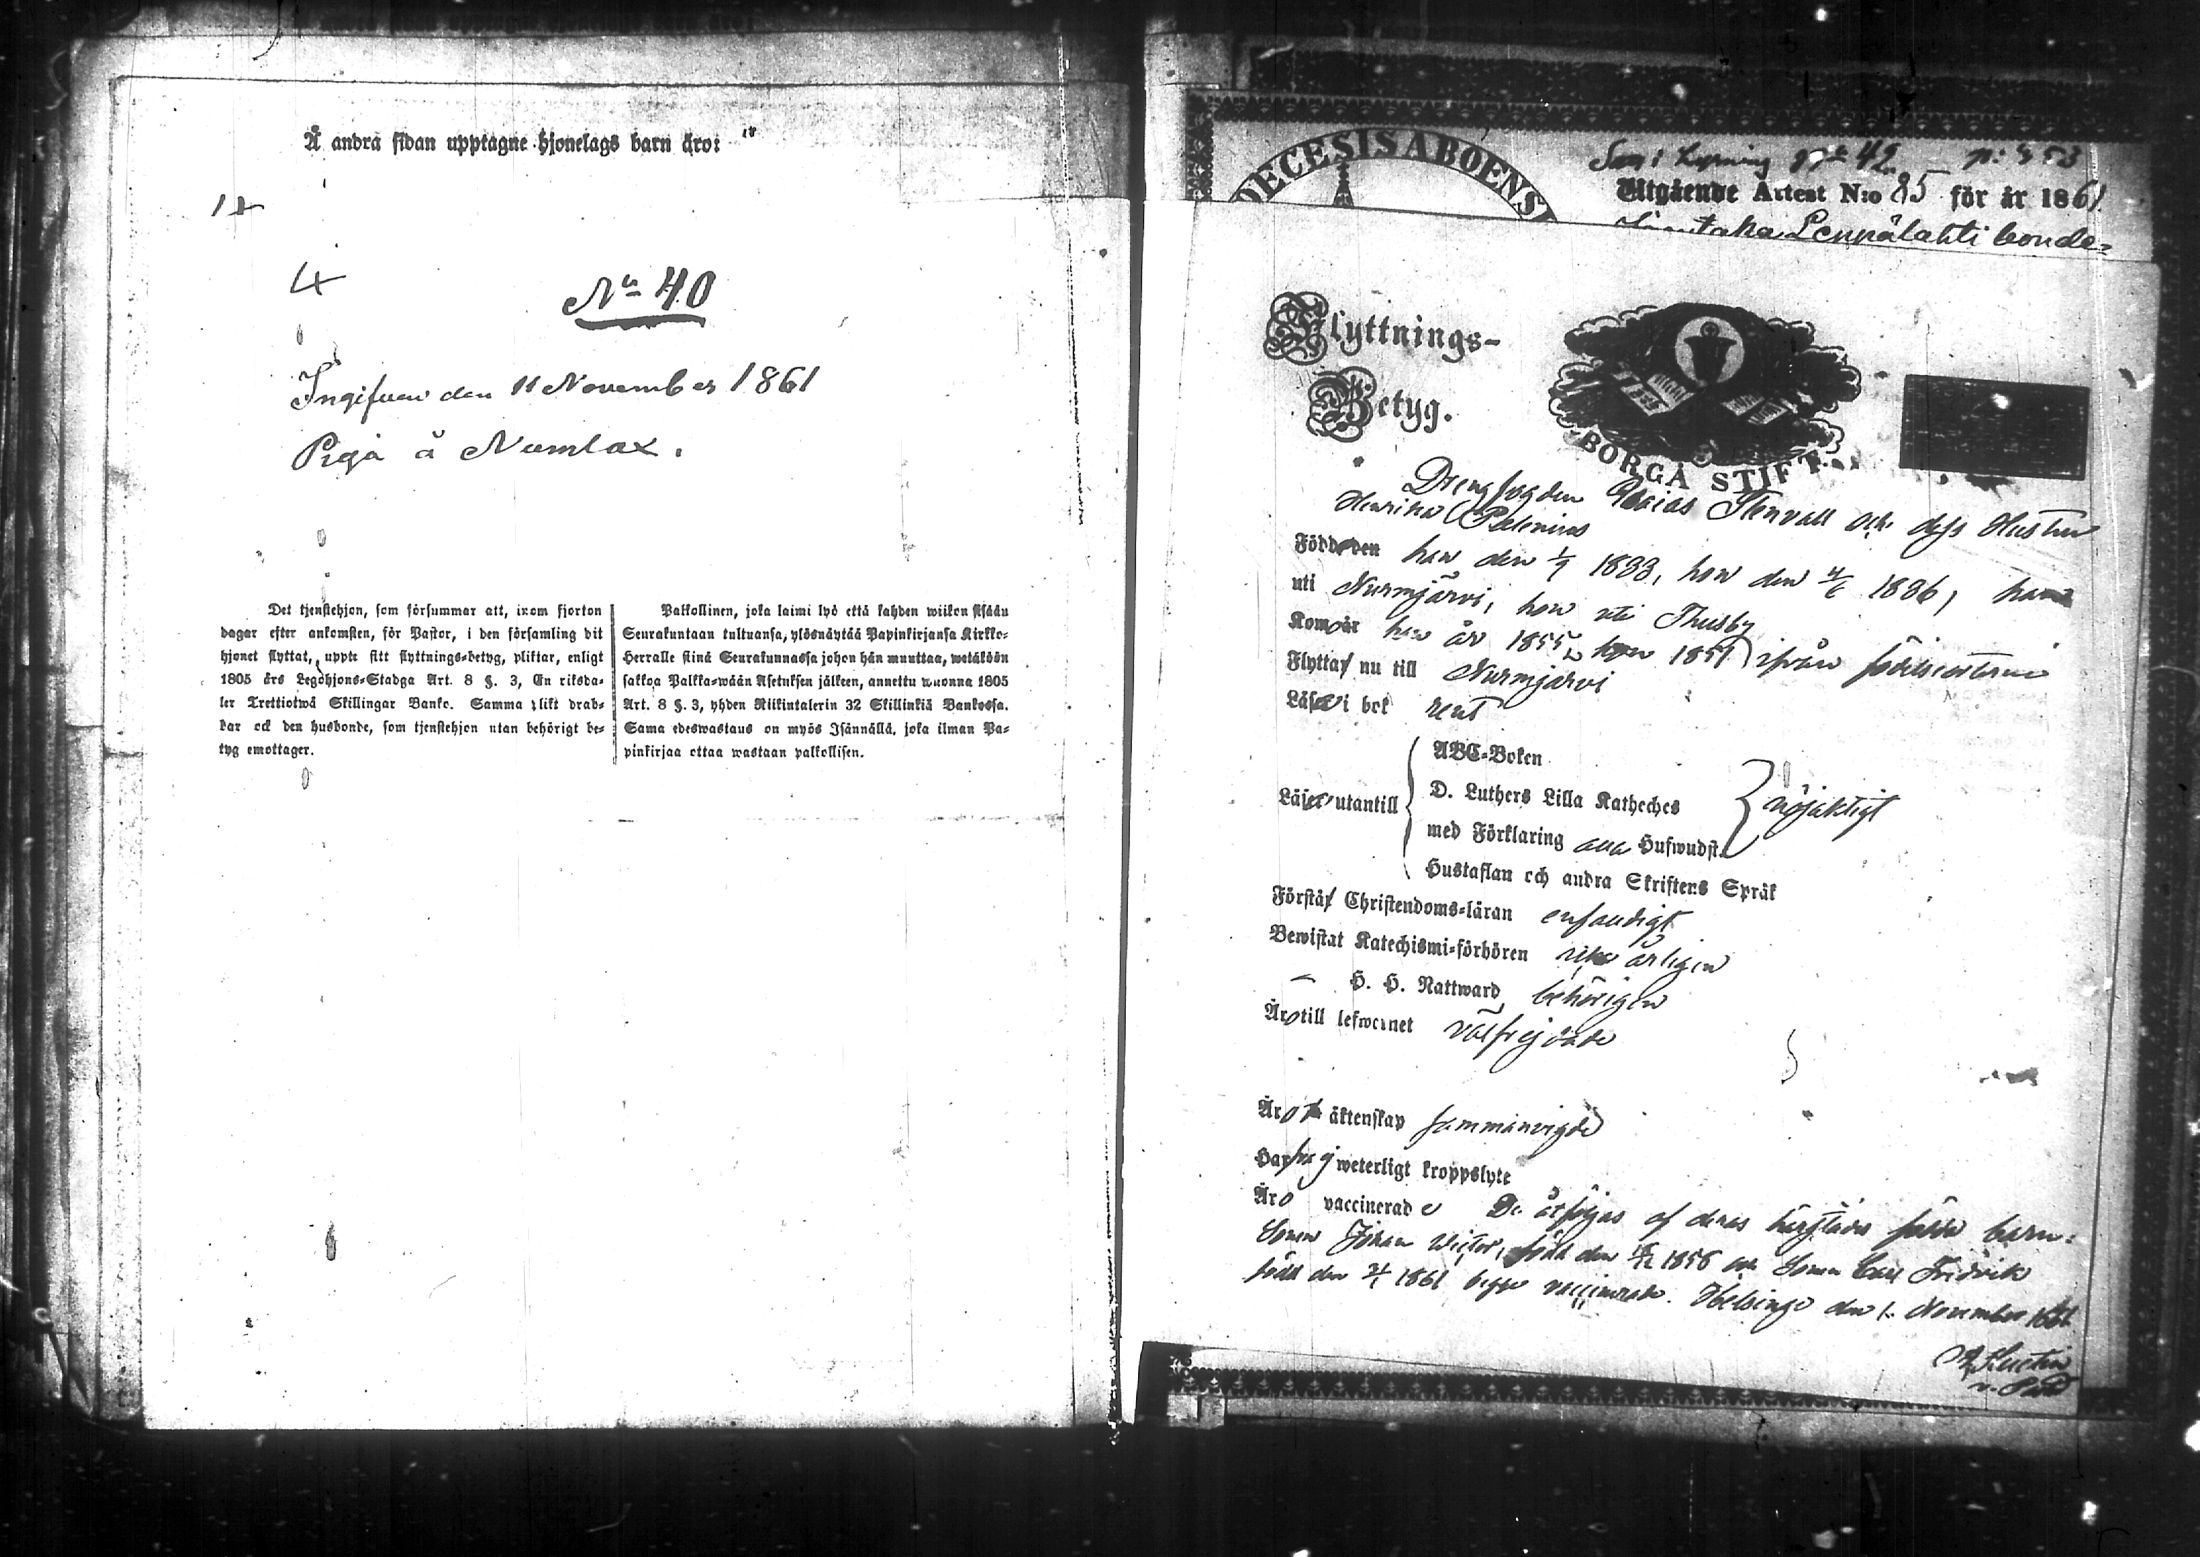 Å andra sidan upptagne hjonelags barn äro:
4
No 40
Ingifven den 11 November 1861
Piga å Numlax.
Det tjenstehjon, som försummar att, inom fjorton
dagar efter ankomsten, för Pastor, i den församling dit
hjonet flyttat, uppte sitt flyttnings-betyg, pliktar, enligt
1805 års Legohjons-Stadga Art. 8 §. 3, En riksda-
ler Trettiotwå Skillingar Banko. Samma plikt drab-
bar ock den husbonde, som tjenstehjon utan behörigt be-
tyg emottager.
Palkollinen, joka laimi lyö että kahden wiikon sisään
Seurakuntaan tultuansa, ylösnäytää Papinkirjansa Kirkko-
Herralle siinä Seurakunnassa johon hän muuttaa, wetäköön
sakkoa Palkka-wään Asetuksen jälkeen, annettu wuonna 1805
Art. 8 §. 3, yhden Riikintalerin 32 Skillinkiä Bankossa.
Sama edeswastaus on myös Isännällä, joka ilman Pa-
pinkirjaa ottaa wastaan palkollisen.
DECESIS ABOENS
Utgående Attest N:o 85 för år 1861
Leppälahti bonde-
Flyttnings-
Betyg.
BORGÅ STIFT.
Drengfogden Esaias Stenvall och dess Hustru
Henrika Palenius
Född den han den 1/9 1833, hon den 4/6 1836, han
uti Nurmjärvi, hon uti Thusby
Kom år han år 1855 hon 1851 ifrån födelseorterna
Flytta nu till Nurmjärvi
Läser i bok rent
Läser utantill
ABC-Boken
D. Luthers Lilla Katheches
med Förklaring Hufwudst.
Hustaflan och andra Skriftens Språk
nöjaktigt
Förstå Christendoms-läran enfaldigt
Bewistat Katechismi-förhören årligen
- H. H. Nattward behörigen
Äro till lefwernet välfrejdade
Äro äktenskap sammanvigde
Ha ej weterligt kroppslyte
Äro vaccinerade De åtföljas af deras härstädes födde barn:
Sonen Johan Victor, född den 1858 och Sonen Carl Fredrik
född den 1861 begge vaccinerade. Helsinge den 1. November 1861